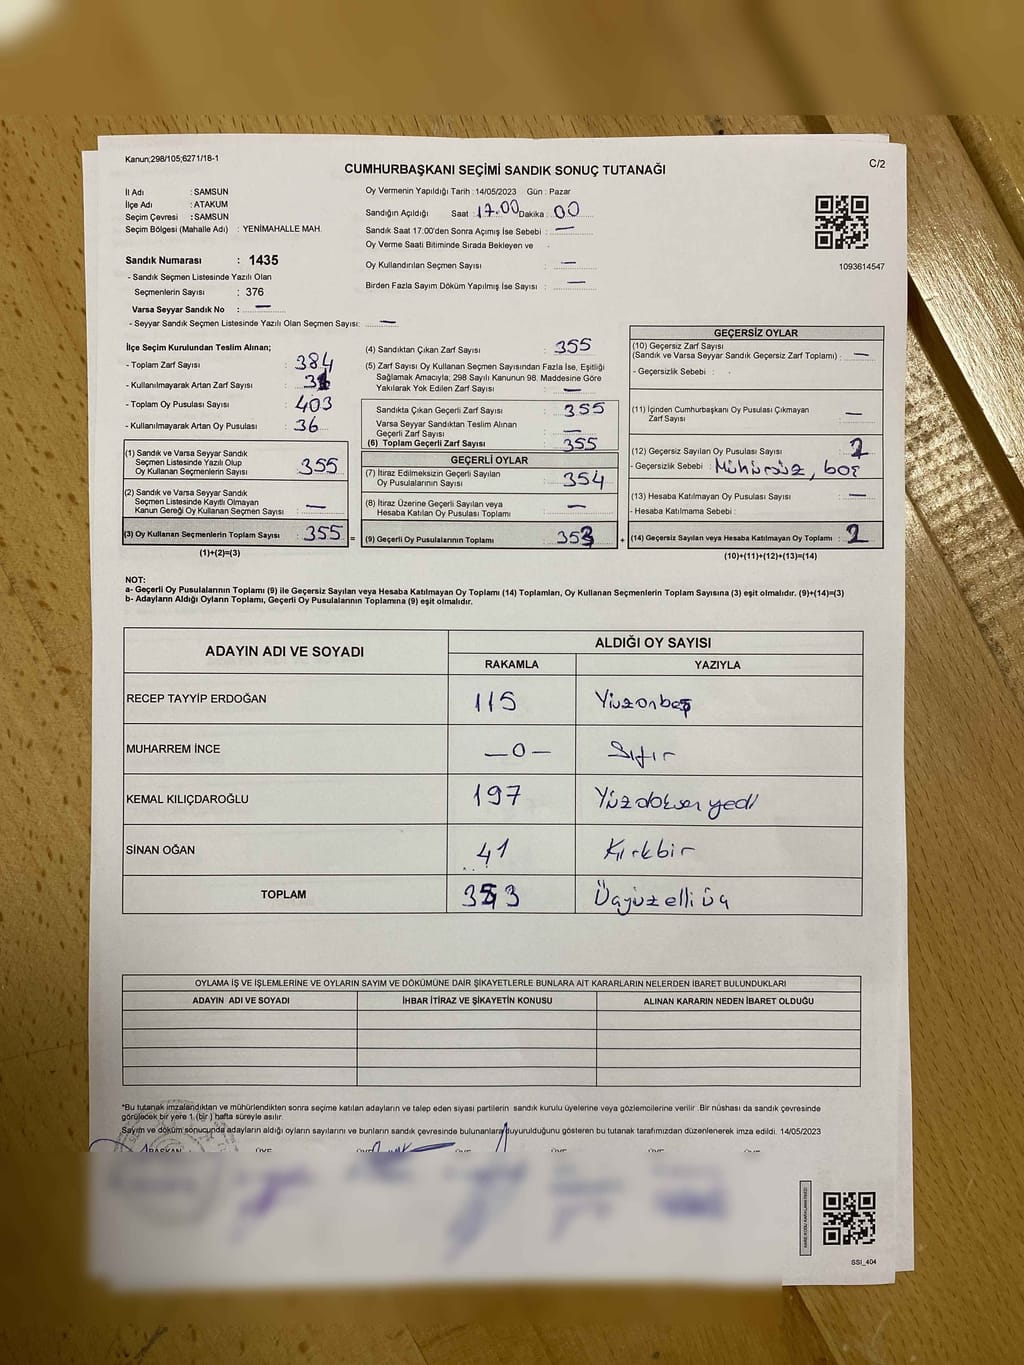 Kanun;298/105;6271/18-1
C/2
CUMHURBAŞKANI SEÇİMİ SANDIK SONUÇ TUTANAĞI
İl Adı : SAMSUN
İlçe Adı : ATAKUM
Seçim Çevresi : SAMSUN
Seçim Bölgesi (Mahalle Adı) : YENİMAHALLE MAH.
Sandık Numarası : 1435
- Sandık Seçmen Listesinde Yazılı Olan
Seçmenlerin Sayısı : 376
Varsa Seyyar Sandık No : —
- Seyyar Sandık Seçmen Listesinde Yazılı Olan Seçmen Sayısı: —
Oy Vermenin Yapıldığı Tarih : 14/05/2023 Gün : Pazar
Sandığın Açıldığı Saat : 17.00 Dakika : 00
Sandık Saat 17:00'den Sonra Açımış İse Sebebi : —
Oy Verme Saati Bitiminde Sırada Bekleyen ve
Oy Kullandırılan Seçmen Sayısı : —
Birden Fazla Sayım Döküm Yapılmış İse Sayısı : —
1093614547
İlçe Seçim Kurulundan Teslim Alınan;
- Toplam Zarf Sayısı : 384
- Kullanılmayarak Artan Zarf Sayısı :
- Toplam Oy Pusulası Sayısı : 403
- Kullanılmayarak Artan Oy Pusulası : 36
(1) Sandık ve Varsa Seyyar Sandık
Seçmen Listesinde Yazılı Olup
Oy Kullanan Seçmenlerin Sayısı : 355
(2) Sandık ve Varsa Seyyar Sandık
Seçmen Listesinde Kayıtlı Olmayan
Kanun Gereği Oy Kullanan Seçmen Sayısı : —
(3) Oy Kullanan Seçmenlerin Toplam Sayısı : 355 =
(1)+(2)=(3)
(4) Sandıktan Çıkan Zarf Sayısı : 355
(5) Zarf Sayısı Oy Kullanan Seçmen Sayısından Fazla İse, Eşitliği
Sağlamak Amacıyla; 298 Sayılı Kanunun 98. Maddesine Göre
Yakılarak Yok Edilen Zarf Sayısı : —
Sandıkta Çıkan Geçerli Zarf Sayısı : 355
Varsa Seyyar Sandıktan Teslim Alınan
Geçerli Zarf Sayısı : —
(6) Toplam Geçerli Zarf Sayısı : 355
GEÇERLİ OYLAR
(7) İtiraz Edilmeksizin Geçerli Sayılan
Oy Pusulalarının Sayısı : 354
(8) İtiraz Üzerine Geçerli Sayılan veya
Hesaba Katılan Oy Pusulası Toplamı : —
(9) Geçerli Oy Pusulalarının Toplamı : 353 +
GEÇERSİZ OYLAR
(10) Geçersiz Zarf Sayısı
(Sandık ve Varsa Seyyar Sandık Geçersiz Zarf Toplamı) : —
- Geçersizlik Sebebi :
(11) İçinden Cumhurbaşkanı Oy Pusulası Çıkmayan
Zarf Sayısı : —
(12) Geçersiz Sayılan Oy Pusulası Sayısı : 2
- Geçersizlik Sebebi : Mühürsüz, boş
(13) Hesaba Katılmayan Oy Pusulası Sayısı : —
- Hesaba Katılmama Sebebi :
(14) Geçersiz Sayılan veya Hesaba Katılmayan Oy Toplamı : 2
(10)+(11)+(12)+(13)=(14)
NOT:
a- Geçerli Oy Pusulalarının Toplamı (9) ile Geçersiz Sayılan veya Hesaba Katılmayan Oy Toplamı (14) Toplamları, Oy Kullanan Seçmenlerin Toplam Sayısına (3) eşit olmalıdır. (9)+(14)=(3)
b- Adayların Aldığı Oyların Toplamı, Geçerli Oy Pusulalarının Toplamına (9) eşit olmalıdır.
ADAYIN ADI VE SOYADI ALDIĞI OY SAYISI
RAKAMLA YAZIYLA
RECEP TAYYİP ERDOĞAN 115 Yüzonbeş
MUHARREM İNCE —0— Sıfır
KEMAL KILIÇDAROĞLU 197 Yüzdoksanyedi
SİNAN OĞAN 41 Kırkbir
TOPLAM 353 Üçyüzelliüç
OYLAMA İŞ VE İŞLEMLERİNE VE OYLARIN SAYIM VE DÖKÜMÜNE DAİR ŞİKAYETLERLE BUNLARA AİT KARARLARIN NELERDEN İBARET BULUNDUKLARI
ADAYIN ADI VE SOYADI İHBAR İTİRAZ VE ŞİKAYETİN KONUSU ALINAN KARARIN NEDEN İBARET OLDUĞU
*Bu tutanak imzalandıktan ve mühürlendikten sonra seçime katılan adayların ve talep eden siyasi partilerin sandık kurulu üyelerine veya gözlemcilerine verilir. Bir nüshası da sandık çevresinde
görülecek bir yere 1 (bir ) hafta süreyle asılır.
Sayım ve döküm sonucunda adayların aldığı oyların sayılarını ve bunların sandık çevresinde bulunanlara duyurulduğunu gösteren bu tutanak tarafımızdan düzenlenerek imza edildi. 14/05/2023
BAŞKAN ÜYE ÜYE ÜYE ÜYE ÜYE ÜYE
SSİ_404